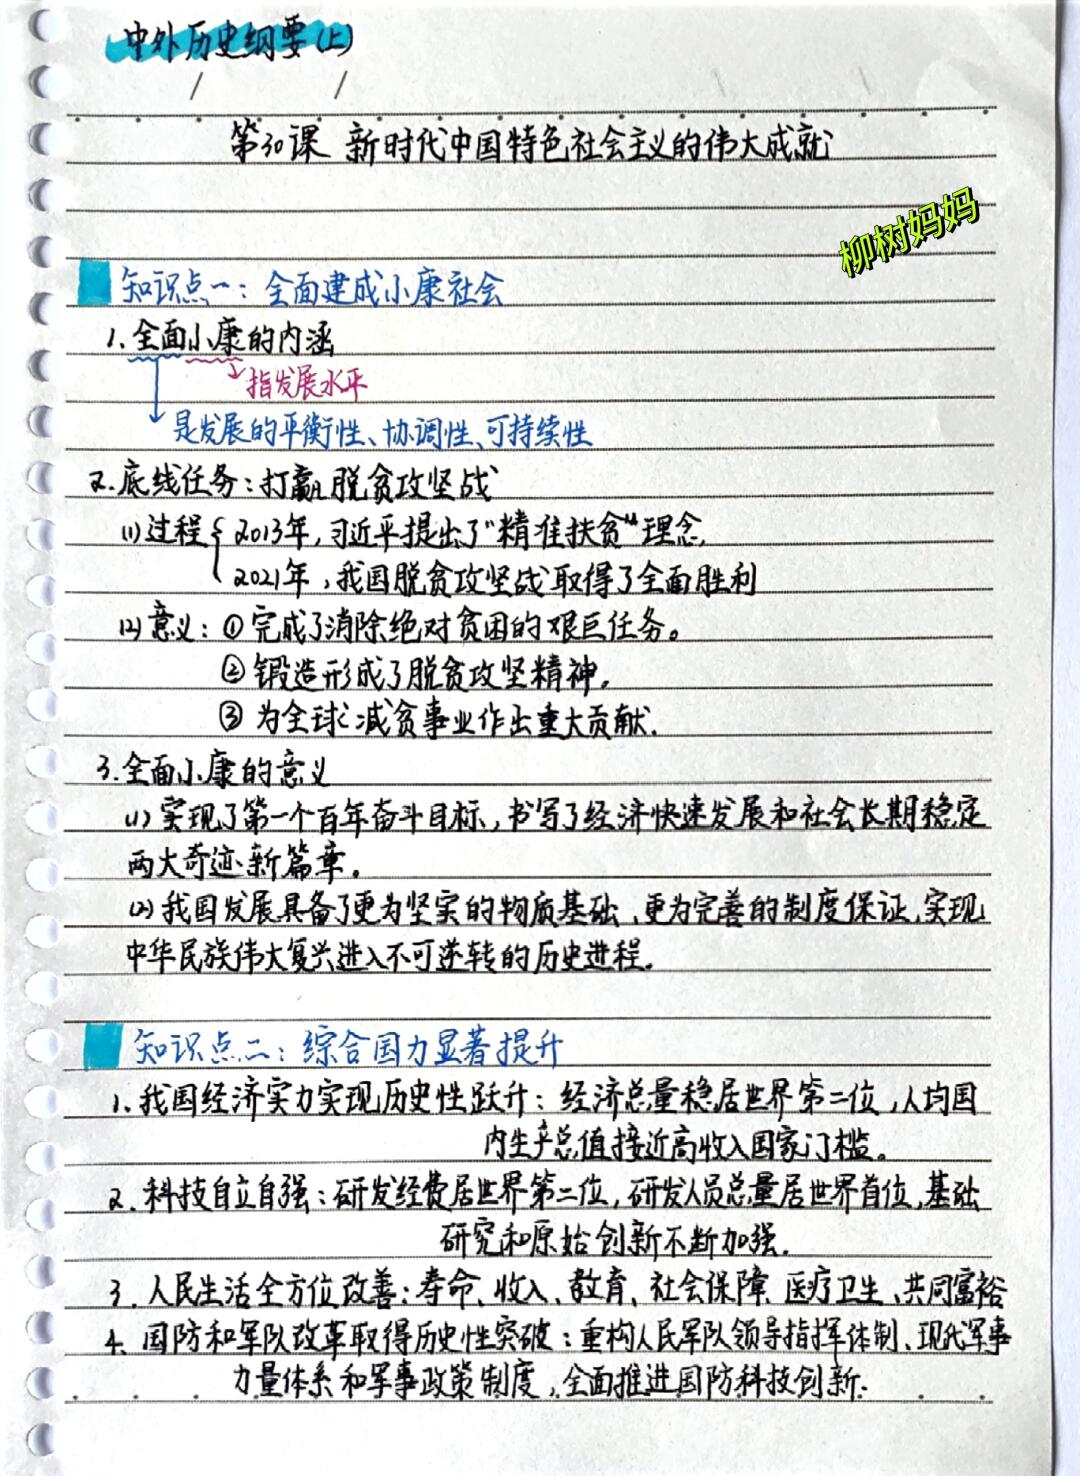 中外历史纲要(上)
第30课 新时代中国特色社会主义的伟大成就
柳树妈妈
知识点一：全面建成小康社会
1.全面小康的内涵
指发展水平
是发展的平衡性、协调性、可持续性
2.底线任务：打赢脱贫攻坚战
(1)过程{2013年,习近平提出了"精准扶贫"理念
2021年,我国脱贫攻坚战取得了全面胜利
(2)意义：①完成了消除绝对贫困的艰巨任务。
②锻造形成了脱贫攻坚精神。
③为全球减贫事业作出重大贡献.
3.全面小康的意义
(1)实现了第一个百年奋斗目标,书写了经济快速发展和社会长期稳定
两大奇迹新篇章。
(2)我国发展具备了更为坚实的物质基础、更为完善的制度保证,实现
中华民族伟大复兴进入不可逆转的历史进程.
知识点二：综合国力显著提升
1.我国经济实力实现历史性跃升：经济总量稳居世界第二位,人均国
内生产总值接近高收入国家门槛。
2.科技自立自强：研发经费居世界第二位,研发人员总量居世界首位,基础
研究和原始创新不断加强.
3.人民生活全方位改善：寿命、收入、教育、社会保障、医疗卫生、共同富裕
4.国防和军队改革取得历史性突破：重构人民军队领导指挥体制、现代军事
力量体系和军事政策制度,全面推进国防科技创新.